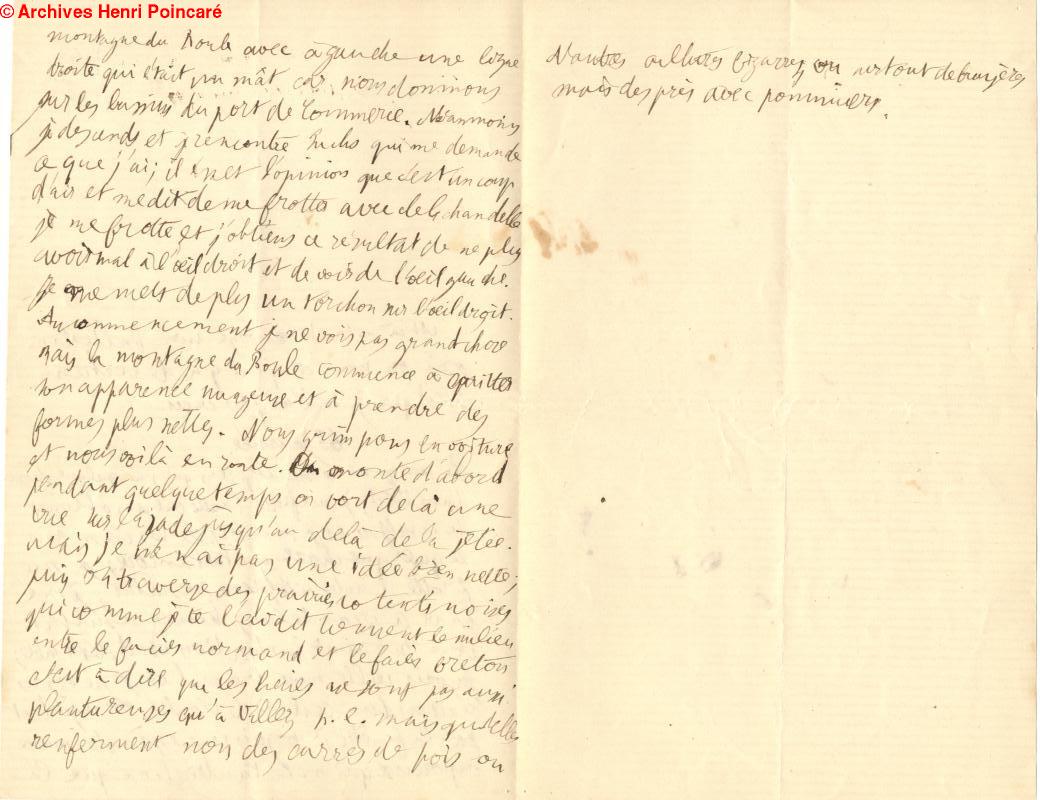 © Archives Henri Poincaré
montagne du Roule avec à gauche une ligne
droite qui était un mât car nous dominons
sur les bassins du port de Commerce. Néanmoins
je descends et je rencontre qui me demande
ce que j'ai; il émet l'opinion que c'est un coup
d'air et me dit de me frotter avec de la chandelle
je me frotte et j'obtiens ce résultat de ne plus
avoir mal à l'œil droit et de vois de l'œil gauche.
Je me mets de plus un torchon sur l'œil droit.
Au commencement je ne vois pas grand chose
mais la montagne du Roule commence à quitter
son apparence nuageuse et à prendre des
formes plus nettes. Nous grimpons en voiture
et nous voilà en route. On monte d'abord
pendant quelque temps on voit de là une
vue sur la rade jusqu'au delà de la jetée.
Mais je n'ai pas une idée bien nette;
puis on traverse des prairies cotentinoises
qui comme je te l'ai dit tiennent le milieu
entre le faciès normand et le faciès breton
c'est à dire que les haies ne sont pas aussi
plantureuses qu'à Villers p. e. mais qu'elles
renferment non des carrés de pois ou
d'autres cultures bizarres, ou surtout de bruyères
mais des près avec pommiers.